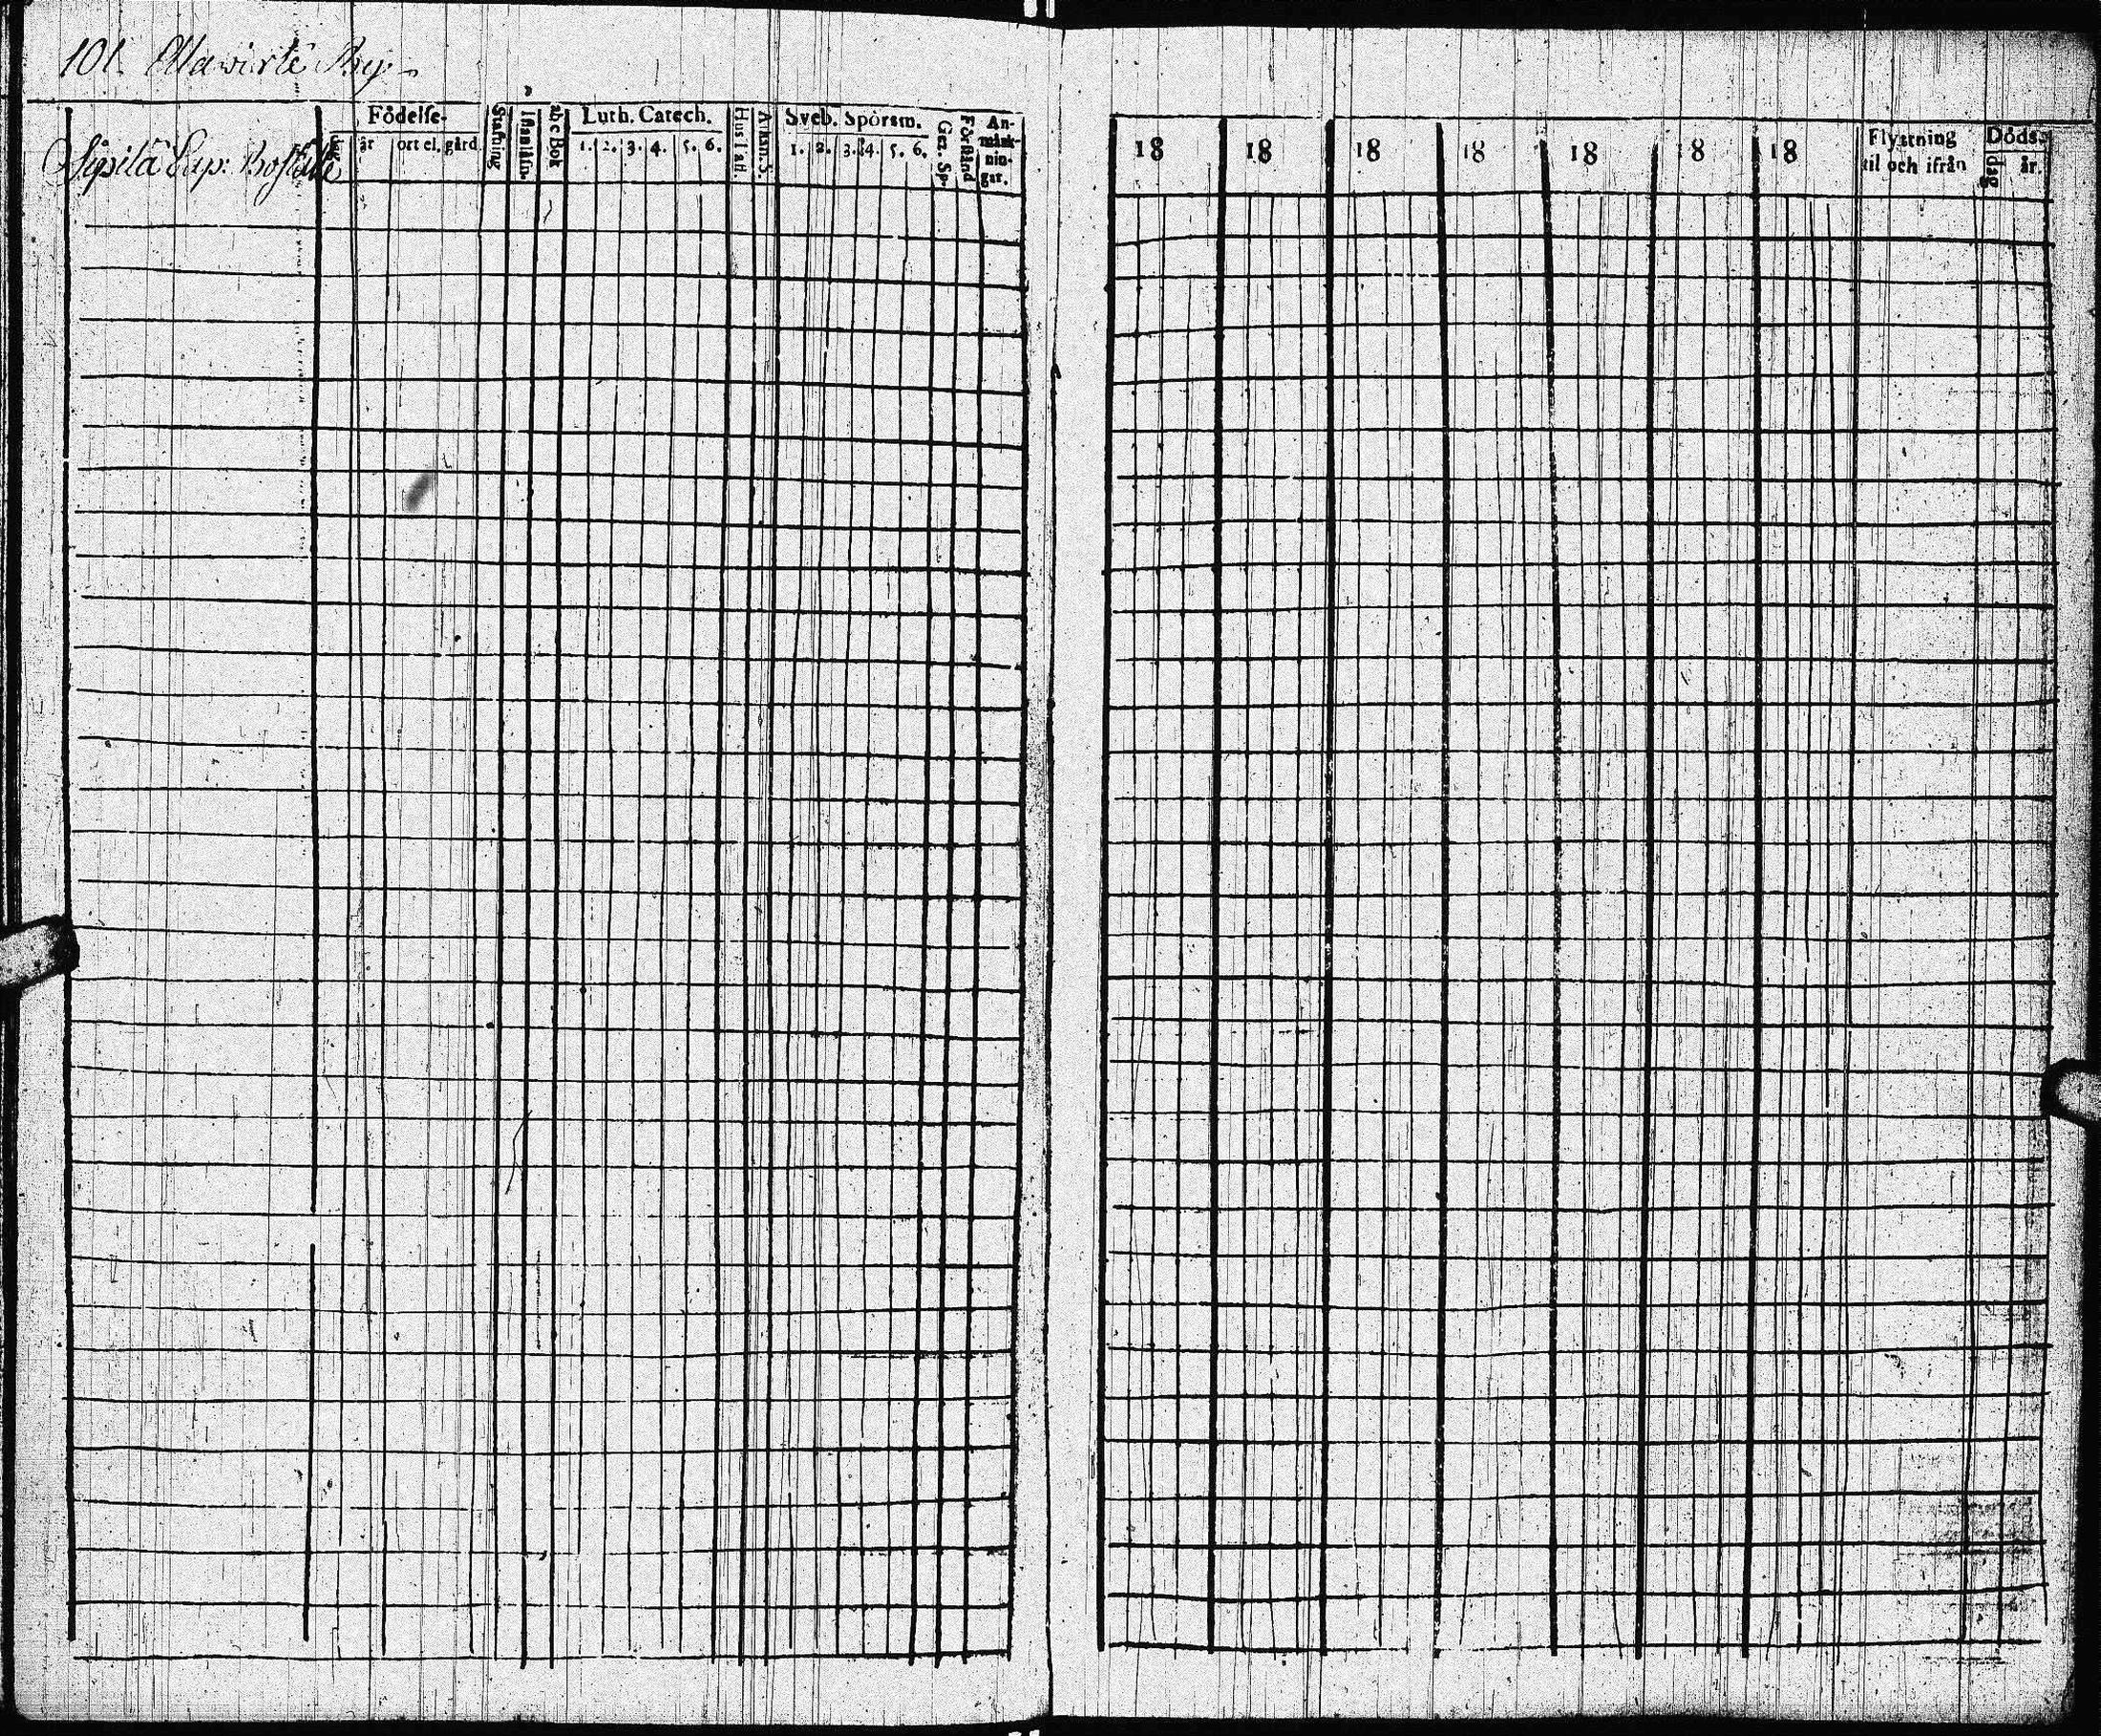 101. Allawirte By.
Födelse- Stafning Luth. Catech. Hus Tafl. Sveb. Spörsm. Gez. Sp. Förstånd An-
märk-
nin-
gar.
dag år ort el. gård. Innanläsn. abc Bok 1. 2. 3. 4. 5. 6. 1. 2. 3. 4. 5. 6.
Sipilä Cap: Boställe
18 18 18 18 18 18 18 Flyttning Döds-
til och ifrån dag år.